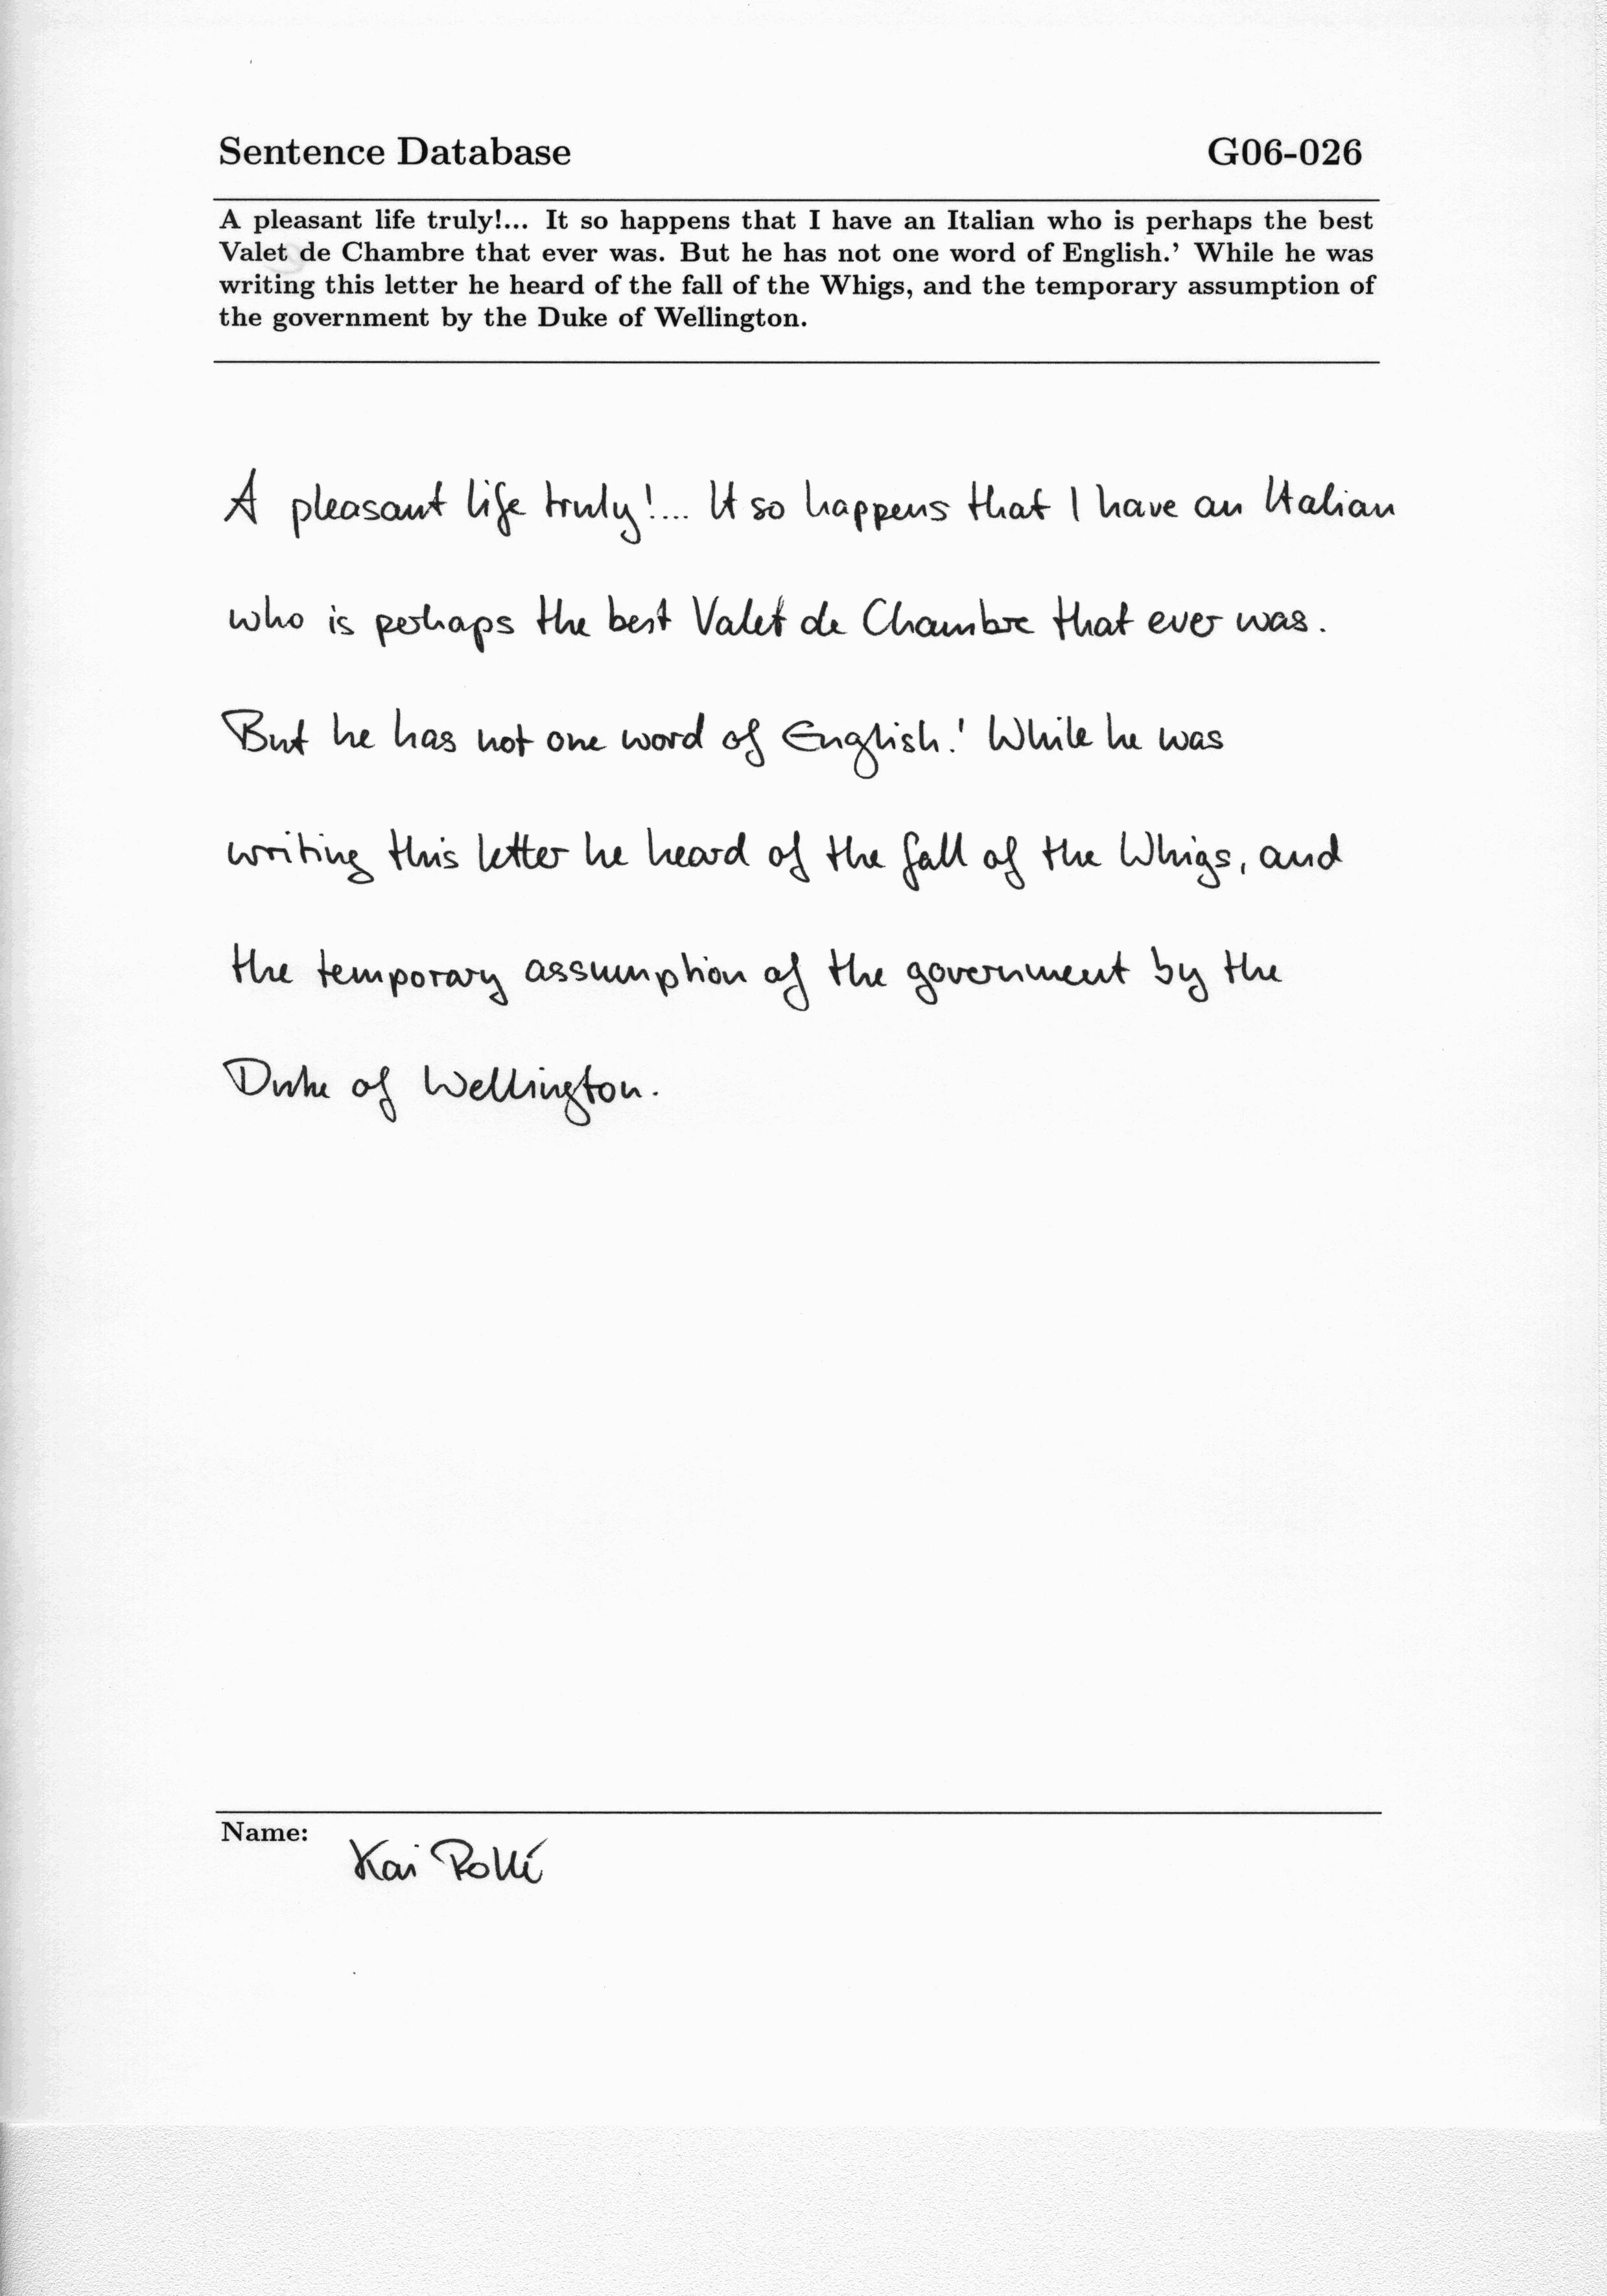 Sentence Database G06-026
A pleasant life truly!... It so happens that I have an Italian who is perhaps the best
Valet de Chambre that ever was. But he has not one word of English.’ While he was
writing this letter he heard of the fall of the Whigs, and the temporary assumption of
the government by the Duke of Wellington.
A pleasant life truly!... It so happens that I have an Italian
who is perhaps the best Valet de Chambre that ever was.
But he has not one word of English.' While he was
writing this letter he heard of the fall of the Whigs, and
the temporary assumption of the government by the
Duke of Wellington.
Name:
Kai